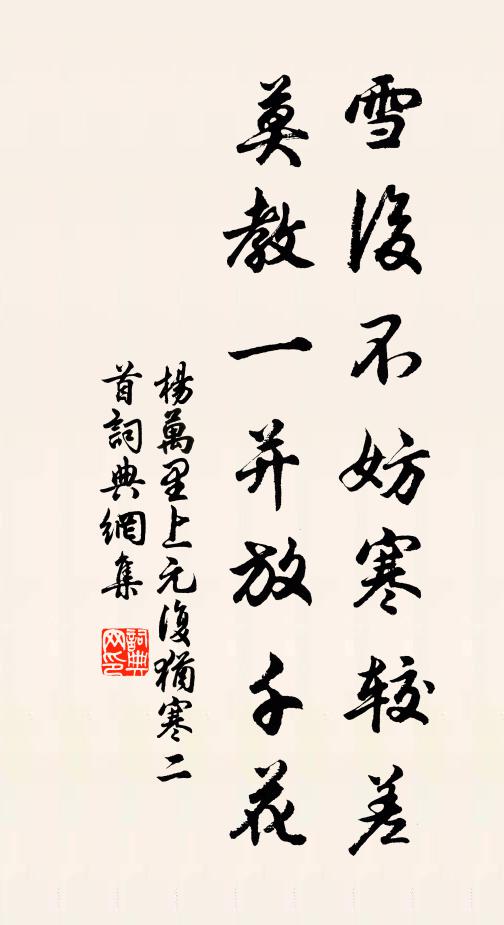 雪後不妨寒较差
莫教一并放千花
楊萬里上元復猶寒二
首詞典網集
詞典
网印